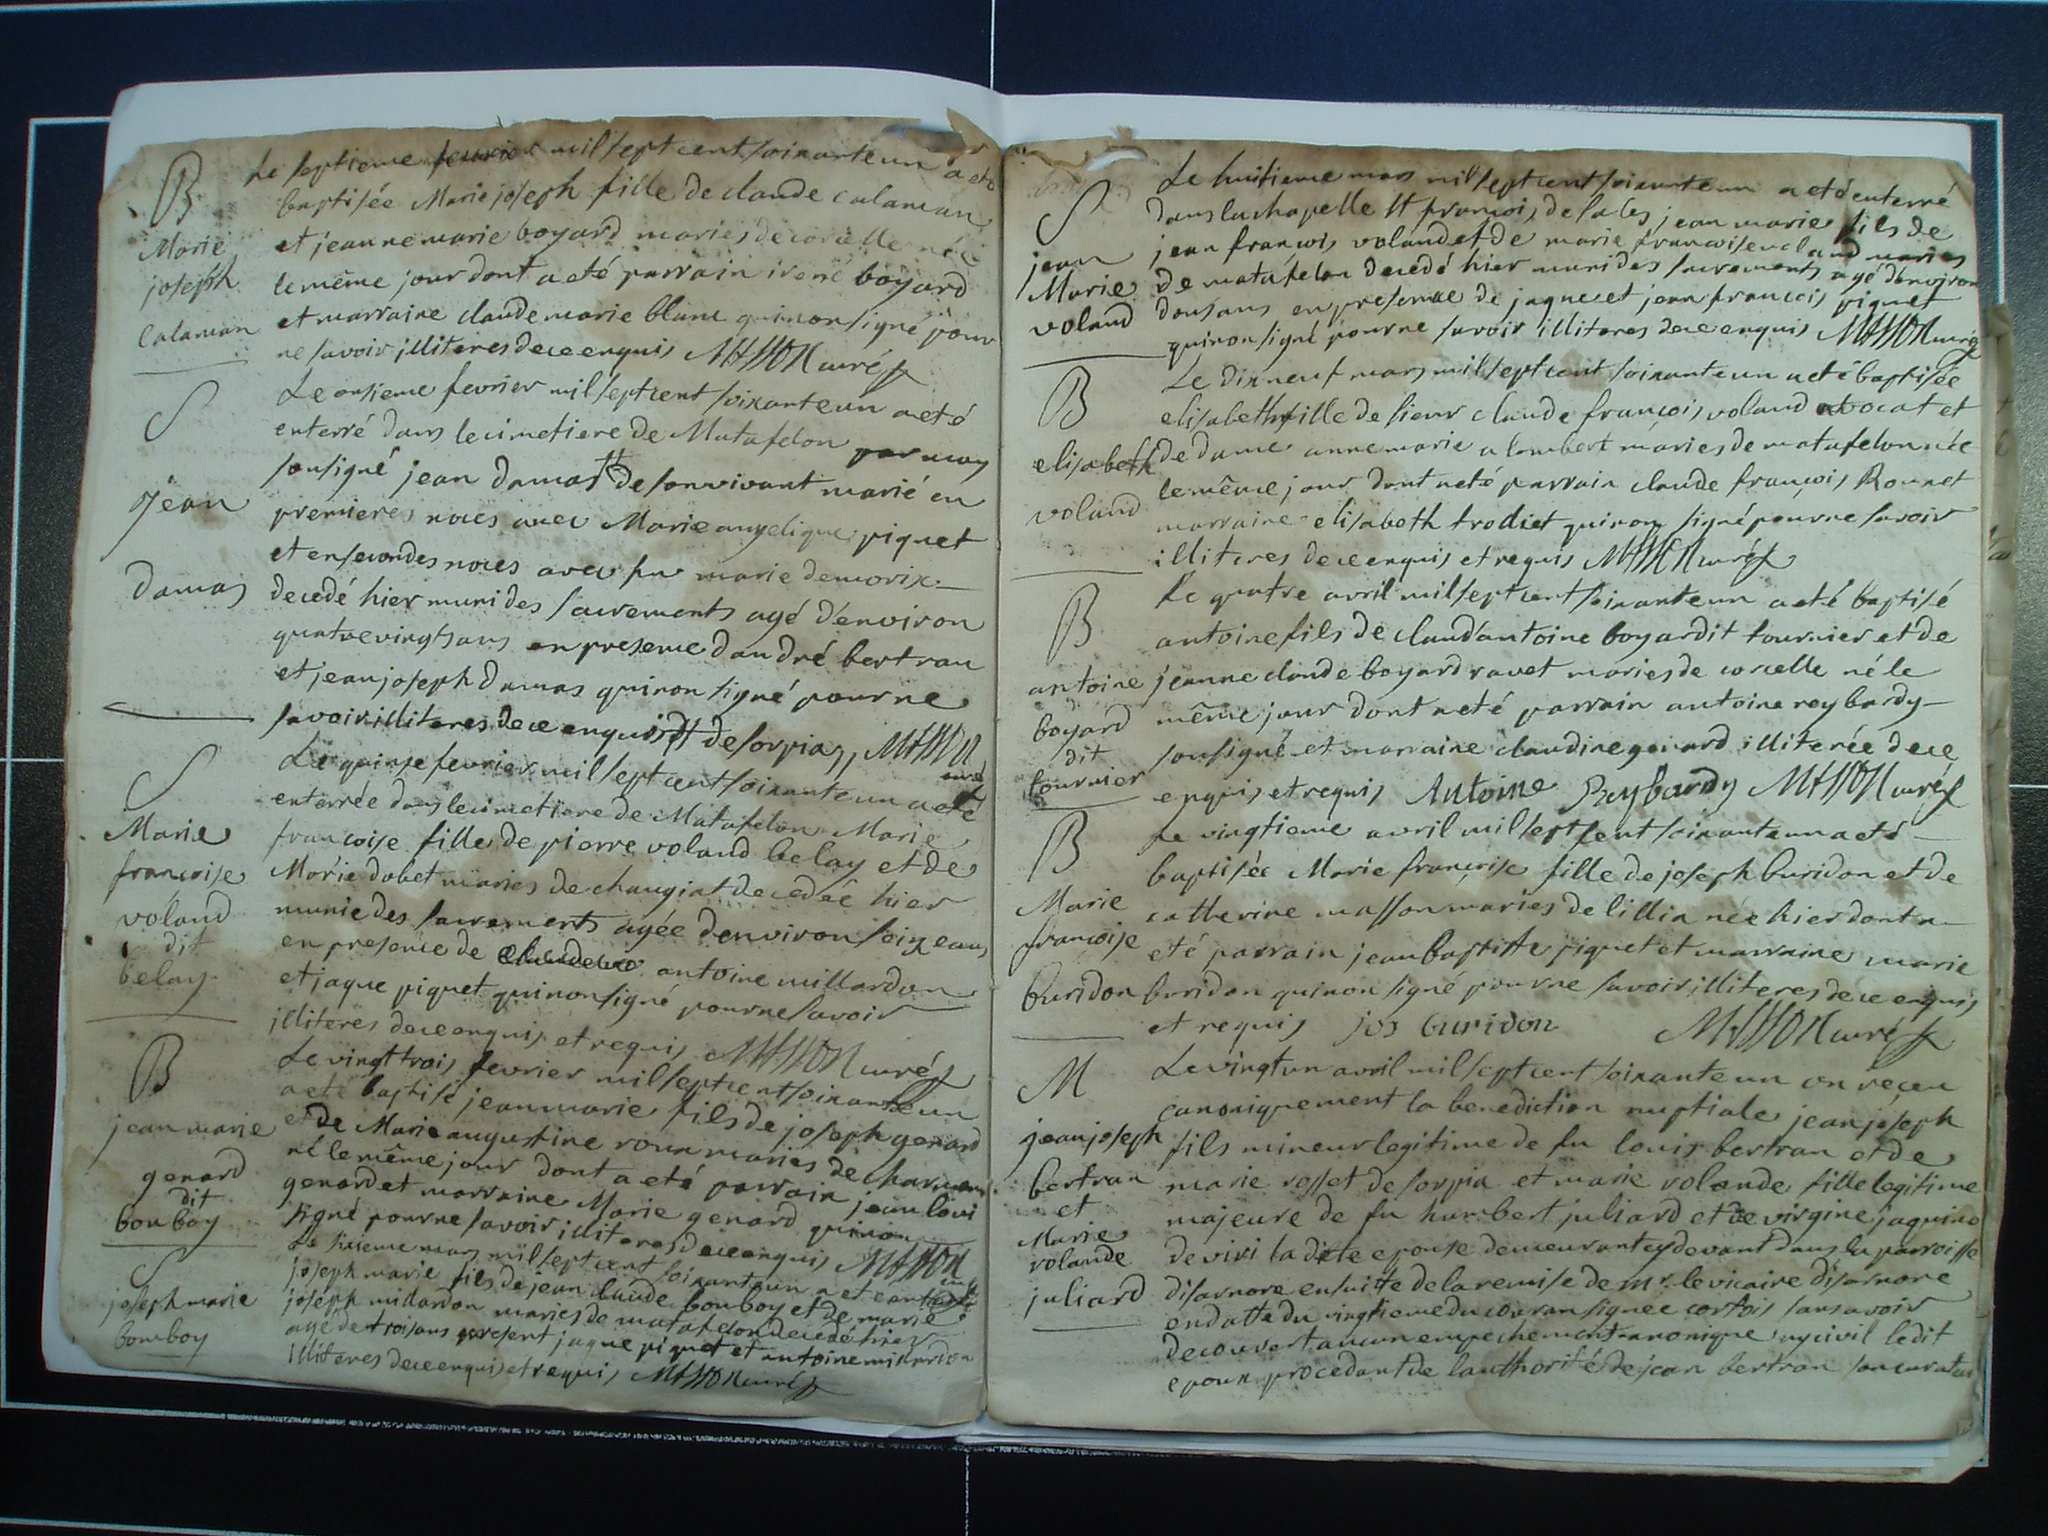 B
Marie
joseph
Calaman
Le septieme fevrier mil sept cent soixante un a eté
baptisée Marie joseph fille de claude calaman
et jeanne marie boyard mariés de corcelle née
le même jour dont a eté parrain irené boyard
et marraine claude marie blanc qui non signé pour
ne savoir illiteres de ce enquis MASSON curé
S
jean
damas
Le onsieme fevrier mil sept cent soixante un a eté
enterré dans le cimetiere de Matafelon par moy
sousigné jean damas de son vivant marié en
premieres noces avec Marie angelique piquet
et en secondes noces avec fu marie demorix
decedé hier muni des sacrements agé d'environ
quatre vingts ans en presence d'andré bertran
et jean joseph damas qui non signé pour ne
savoir illiteres de ce enquis dt de sorpia MASSON
curé
S
Marie
francoise
voland
dit
belay
Le quinse fevrier mil sept cent soixante un a eté
enterrée dans le cimetiere de Matafelon Marie
francoise fille de pierre voland belay et de
Marie dabet mariés de changiat decedée hier
munie des sacrements agée d'environ seize ans
en presence de antoine millardon
et jaque piquet qui non signé pour ne savoir
illiteres de ce enquis et requis MASSON curé
B
jean marie
genard
dit
bonboy
Le vingt trois fevrier mil sept cent soixante un
a eté baptisé jean marie fils de joseph genard
et de Marie augustine roux mariés de
né le même jour dont a eté parrain jean loui
genard et marraine Marie genard qui non
signé pour ne savoir illiteres de ce enquis MASSON
curé
S
joseph marie
bomboy
Le sixieme mars mil sept cent soixante un a eté enterré
joseph marie fils de jean claude bonboy et de marie
joseph millardon mariés de matafelon decedé hier
agé de trois ans present jaque piquet et antoine millardon
illiteres de ce enquis et requis MASSON curé
S
jean
Marie
voland
Le huitieme mars mil sept cent soixante un a eté enterré
dans la chapelle St francois de sales jean marie fils de
jean francois voland et de marie francoise mariés
de matafelon decedé hier muni des sacrements agé d'environ
dous ans en presence de jaque et jean francois piquet
qui non signé pour ne savoir illiteres de ce enquis MASSON curé
B
elisabeth
voland
Le dix neuf mars mil sept cent soixante un a eté baptisée
elisabeth fille de sieur claude françois voland avocat et
de dame anne marie alombert mariés de matafelon née
le même jour dont a eté parrain claude françois Ronnet
marraine elisabeth trodiet qui non signé pour ne savoir
illiteres de ce enquis et requis MASSON curé
B
antoine
boyard
dit
tournier
Le quatre avril mil sept cent soixante un a eté baptisé
antoine fils de claud'antoine boyard dit tournier et de
jeanne claude boyard ravet mariés de corcelle né le
même jour dont a eté parrain antoine reybardy
sousigné et marraine claudine genard illiterée de ce
enquis et requis Antoine Reybardy MASSON curé
B
Marie
françoise
buridon
Le vingtieme avril mil sept cent soixante un a eté
baptisée Marie françoise fille de joseph buridon et de
catherine masson mariés de lillia née hier dont a
eté parrain jean baptiste piquet et marraine marie
buridon qui non signé pour ne savoir illiteres de ce enquis
et requis jos buridon MASSON curé
M
jean joseph
bertran
et
Marie
rolande
juliard
Le vingt un avril mil sept cent soixante un on reçeu
canoniquement la benediction nuptiale jean joseph
fils mineur legitime de fu louis bertran et de
marie rosset de sorpia et marie rolande fille legitime
majeure de fu humbert juliard et de virgine jaquino
de viri la dite epouse demeurant cy devant dans la parroisse
disarnore ensuite de la remise de mr le vicaire disarnore
en datte du vingtieme du couran signee cortois sans avoir
decouvert aucun empechement canonique ny civil le dit
epoux procedant de l'authorité de jean bertran son curateur